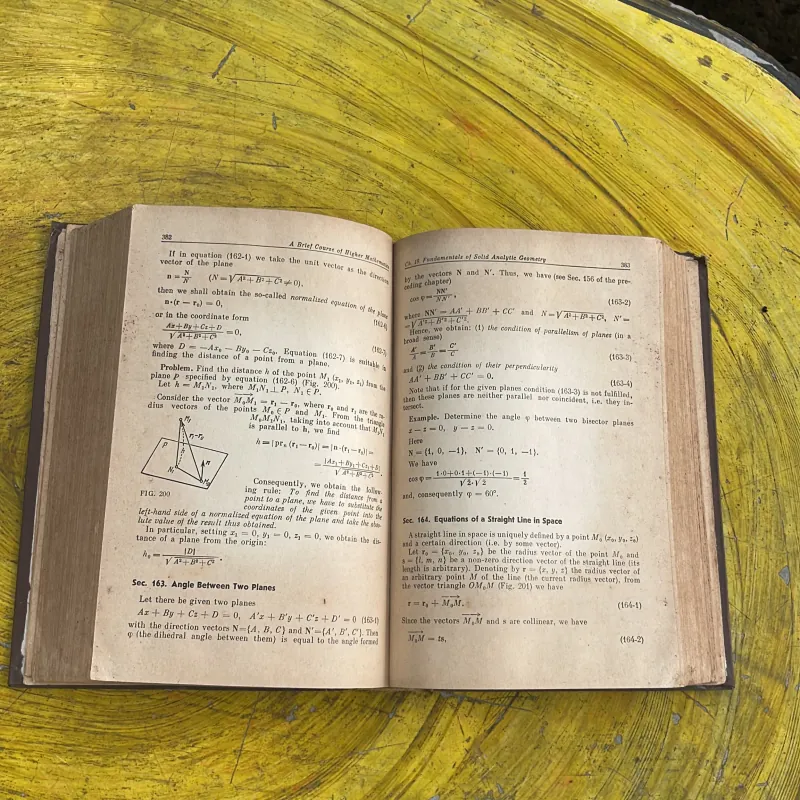 382
A Brief Course of Higher Mathematics
If in equation (162-1) we take the unit vector as the direction
vector of the plane
n = N/N (N = √A² + B² + C² ≠ 0),
then we shall obtain the so-called normalized equation of the plane
n·(r — r₀) = 0, (162-6)
or in the coordinate form
Ax + By + Cz + D / √A² + B² + C² = 0, (162-7)
where D = —Ax₀ — By₀ — Cz₀. Equation (162-7) is suitable in
finding the distance of a point from a plane.
Problem. Find the distance h of the point M₁ (x₁, y₁, z₁) from the
plane P specified by equation (162-6) (Fig. 200).
Let h = M₁N₁, where M₁N₁ ⊥ P, N₁ ∈ P.
Consider the vector M₀M₁ = r₁ — r₀, where r₀ and r₁ are the ra-
dius vectors of the points M₀ ∈ P and M₁. From the triangle
M₀M₁N₁, taking into account that M₁N₁
is parallel to h, we find
h = |prₙ (r₁ — r₀)| = |n·(r₁ — r₀)| =
= |Ax₁ + By₁ + Cz₁ + D| / √A² + B² + C²
M₁
r₁—r₀
P
h
n
N₁
M₀
FIG. 200
Consequently, we obtain the follow-
ing rule: To find the distance from a
point to a plane, we have to substitute the
coordinates of the given point into the
left-hand side of a normalized equation of the plane and take the abso-
lute value of the result thus obtained.
In particular, setting x₁ = 0, y₁ = 0, z₁ = 0, we obtain the dis-
tance of a plane from the origin:
h₀ = |D| / √A² + B² + C² .
Sec. 163. Angle Between Two Planes
Let there be given two planes
Ax + By + Cz + D = 0, A'x + B'y + C'z + D' = 0 (163-1)
with the direction vectors N = {A, B, C} and N' = {A', B', C'}. Then
φ (the dihedral angle between them) is equal to the angle formed
Ch. 19. Fundamentals of Solid Analytic Geometry
383
by the vectors N and N'. Thus, we have (see Sec. 156 of the pre-
ceding chapter)
cos φ = NN' / NN' , (163-2)
where NN' = AA' + BB' + CC' and N = √A² + B² + C², N' =
= √A'² + B'² + C'².
Hence, we obtain: (1) the condition of parallelism of planes (in a
broad sense)
A'/A = B'/B = C'/C (163-3)
and (2) the condition of their perpendicularity
AA' + BB' + CC' = 0. (163-4)
Note that if for the given planes condition (163-3) is not fulfilled,
then these planes are neither parallel nor coincident, i.e. they in-
tersect.
Example. Determine the angle φ between two bisector planes
x — z = 0, y — z = 0.
Here
N = {1, 0, —1}, N' = {0, 1, —1}.
We have
cos φ = 1·0+0·1+(—1)·(—1) / √2·√2 = 1/2
and, consequently, φ = 60°.
Sec. 164. Equations of a Straight Line in Space
A straight line in space is uniquely defined by a point M₀ (x₀, y₀, z₀)
and a certain direction (i.e. by some vector).
Let r₀ = {x₀, y₀, z₀} be the radius vector of the point M₀ and
s = {l, m, n} be a non-zero direction vector of the straight line (its
length is arbitrary). Denoting by r = {x, y, z} the radius vector of
an arbitrary point M of the line (the current radius vector), from
the vector triangle OM₀M (Fig. 201) we have
r = r₀ + M₀M. (164-1)
Since the vectors M₀M and s are collinear, we have
M₀M = ts, (164-2)